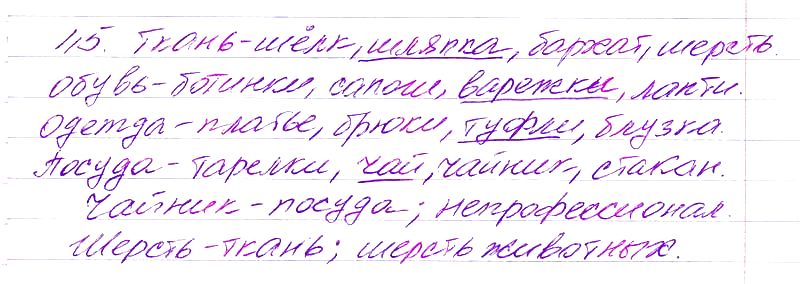 115. Ткань-шёлк, шляпка, бархат, шерсть.
Обувь-ботинки, сапоги, варежки, лапти.
Одежда-платье, брюки, туфли, блузка.
Посуда-тарелки, чай, чайник, стакан.
Чайник-посуда; непрофессионал.
Шерсть-ткань; шерсть животных.